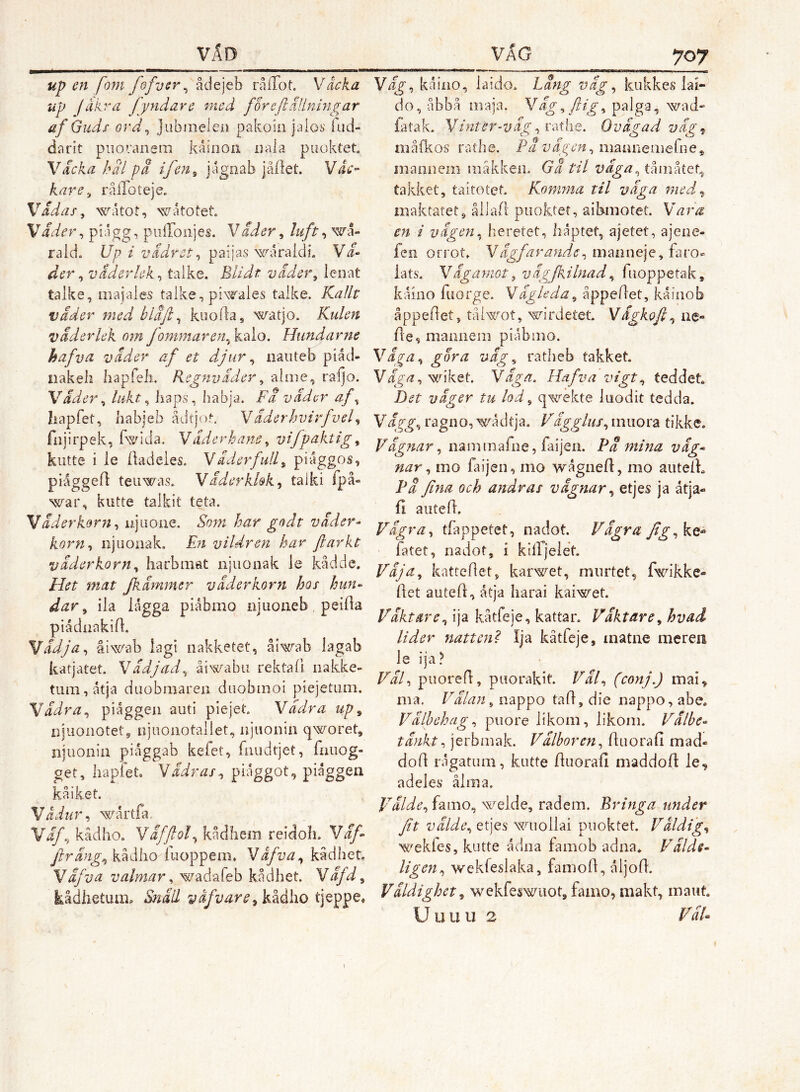 VÅD VÅG 707
up en ſom ſofver, ådejeb råſſot. Väcka
up ſäkra ſyndare med föreſtällningar
af Guds ord, Jubmelen pakoin jalos ſud-
darit puoranem kåinon nala puoktet.
Väcka hål på iſen, jågnab jåſtet. Väc-
kare, råſſoteje.
Vädas, wåtot, wåtotet.
Väder, piägg, puſſonjes. Väder, luft, wä-
rald. Up i vädret, paijas wäraldi. Vä-
der, väderlek, talke. Blidt väder, lenat
talke, majales talke, piwales talke. Kallt
väder med blåſt, kuoſta, watjo. Kulen
väderlek om ſommaren, kalo. Hundarne
hafva väder af et djur, nauteb piäd-
nakeh hapſeh. Regnväder, alme, raſjo.
Väder, lukt, haps, habja. Få väder af,
hapſet, habjeb ådtjot. Väderhvirfvel,
ſnjirpek, ſwida. Väderhane, vifpaktig,
kutte i le ſtadeles. Väderfull, piäggos,
piäggeſt teuwas. Väderklok, talki ſpå-
war, kutte talkit teta.
Väderkorn, njuone. Som har godt väder-
korn, njuonak. En vildren har ſtarkt
väderkorn, harbmat njuonak le kådde.
Het mat ſkämmer väderkorn hos hun-
dar, ila lågga piäbmo njuoneb peiſta
piädnakiſt.
Vädja, åiwab lagi nakketet, åiwab lagab
katjatet. Vädjad, åiwabu rektaſt nakke-
tum, åtja duobmaren duobmoi piejetum.
Vädra, piäggen auti piejet. Vädra up,
njuonotet, njuonotallet, njuonin qworet,
njuonin piäggab keſet, ſnudtjet, ſnuog-
get, hapſet. Vädras, piäggot, piäggen
kåiket.
Vädur, wärtſa.
Väf, kådho. Väfſtol, kådhem reidoh. Väf-
ſträng, kådho ſuoppem. Väfva, kådhet.
Väfva valmar, wadaſeb kådhet. Väfd,
kådhetum. Snäll väfvare, kådho tjeppe.
Väg, kåino, laido. Lång väg, kukkes lai-
do, åbbå maja. Väg, ſtig, palga, wad-
ſatak. Vinter-väg, rathe. Ovägad väg,
måſkos rathe. På vägen, mannemeſne,
mannem måkken. Gå til väga, tåmåtet,
takket, taitotet. Komma til väga med,
maktatet, ållaſt puoktet, aibmotet. Vara
en i vägen, heretet, håptet, ajetet, ajene-
ſen orrot. Vägfarande, manneje, ſaro-
lats. Vägamot, vägſkilnad, ſuoppetak,
kåino ſuorge. Vägleda, åppeſtet, kåinob
åppeſtet, tålwot, wirdetet. Vägkoſt, ne-
ſte, mannem piäbmo.
Väga, göra väg, ratheb takket.
Väga, wiket. Väga. Hafva vigt, teddet.
Det väger tu lod, qwekte luodit tedda.
Vägg, ragno, wådtja. Vägglus, muora tikke.
Vägnar, nammaſne, ſaijen. På mina väg-
nar, mo ſaijen, mo wågneſt, mo auteſt.
På ſina och andras vägnar, etjes ja åtja-
ſi auteſt.
Vägra, tſappetet, nadot. Vägra ſig, ke-
ſatet, nadot, i kiſſjelet.
Väja, katteſtet, karwet, murtet, ſwikke-
ſtet auteſt, åtja harai kaiwet.
Väktare, ija kåtſeje, kattar. Väktare, hvad
lider natten? Ija kåtſeje, matne meren
le ija?
Väl, puoreſt, puorakit. Väl, (conj.) mai,
ma. Välan, nappo taſt, die nappo, abe.
Välbehag, puore likom, likom. Välbe-
tänkt, jerbmak. Välboren, ſtuoraſi mad-
doſt rågatum, kutte ſtuoraſi maddoſt le,
adeles ålma.
Välde, ſamo, welde, radem. Bringa under
ſit välde, etjes wuollai puoktet. Väldig,
wekſes, kutte ådna ſamob adna. Välde-
ligen, wekſeslaka, ſamoſt, åljoſt.
Väldighet, wekſeswuot, ſamo, makt, maut.
Uuuu 2 Väl-